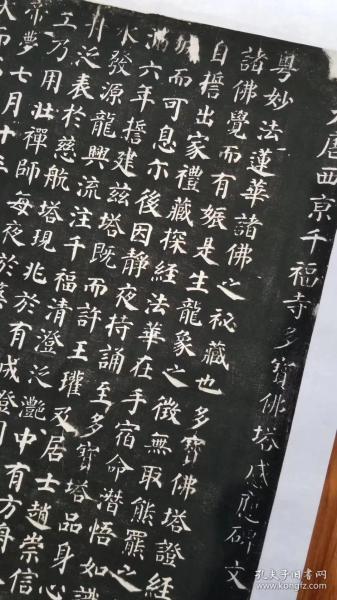 大唐西京千福寺多寶佛塔感應碑文
粵妙法蓮華諸佛之秘藏也多寶佛塔證經
諸佛覺而有娠是生龍象之徵無取熊羆之
自誓出家禮藏探經法華在手宿命潛悟如識
城而可息尒後因靜夜持誦至多寶塔品身心
滿六年誓建茲塔既而許王瓘及居士趙崇信
水發源龍興流注千福清澄泛灩中有方舟
泛表於慈航塔現兆於有成證
工乃用壯禪師每夜於
帝夢七月十三
孔夫子旧书网